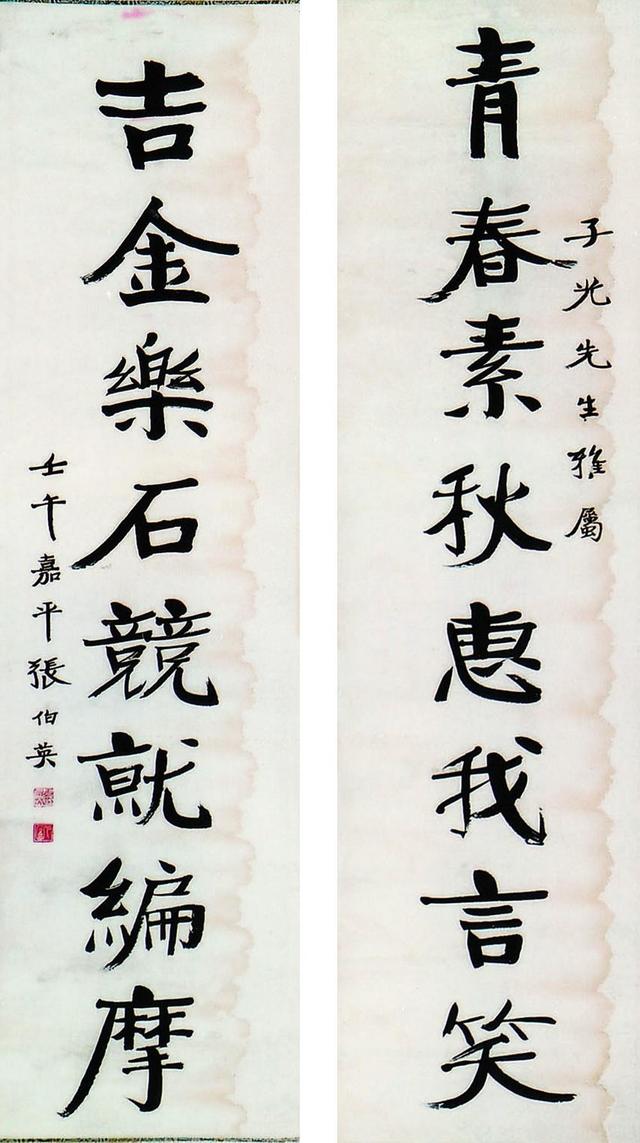 子光先生雅屬
青春素秋惠我言笑
吉金樂石競就編摩
壬午嘉平張伯英